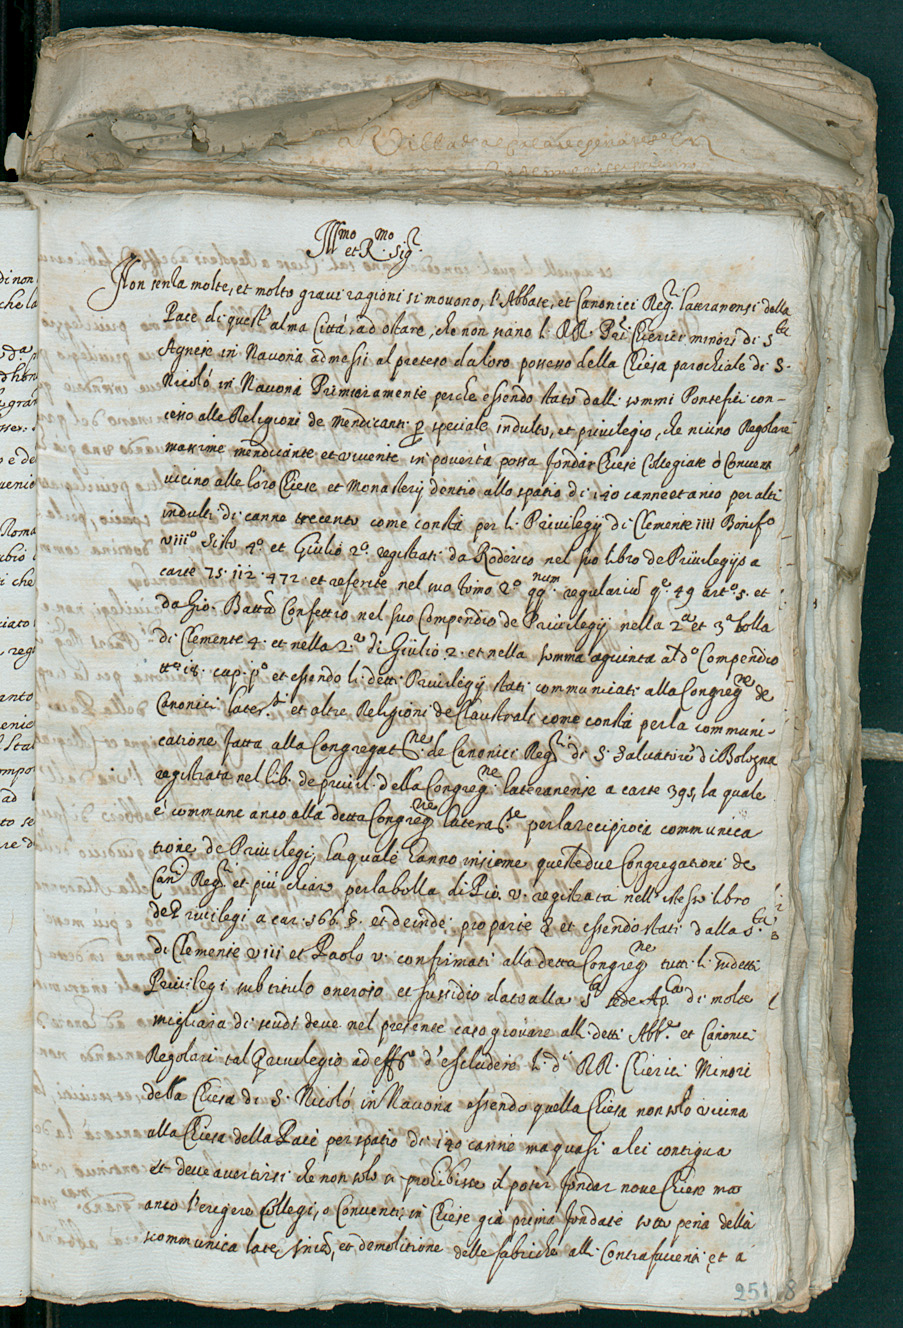 Ill.mo et R.mo Sig.r
Non senza molte, et molto gravi ragioni si movono, l'Abbate, et Canonici Reg.ri lateranensi della
Pace di quest'alma Cittá, ad ostare, che non siano li RR. Pri Clerici minori di S.ta
Agnese in Navona admessi al preteso da loro possesso della Chiesa parochiale di S.
Nicoló in Navona Primieramente perche essendo stato dalli sommi Pontefici con-
cesso alle Religioni de Mendicanti per speciale indulto, et privilegio, che niuno Regolare
maxime mendicante et vivente in povertà possa fondar Chiese Collegiate ò Conventi
vicino alle loro Chiese et Monasterij dentro allo spatio di 140 canne et anco per altri
indulti di canne trecento come consta per li Privilegij di Clemente IIII Bonifo
VIIIo Sisto 4.o et Giulio 2.o registrati da Roderico nel suo libro de Privilegijs a
carte 75. 112. 472. et referite nel suo tomo 2.o qq.num regulariũ q.e 49 art.o 5. et
da Gio. Batta Confettio nel suo Compendio de Privilegij nella 2.a et 3.a bolla
di Clemente 4. et nella 2.a di Giulio 2. et nella somma agiunta al d.o Compendio
tt.o 18. cap. p.o et essendo li detti Privilegij stati communicati alla Congreg.ne de
Canonici later.si et altre Religioni de Claustrali come consta per la communi-
catione fatta alla Congregat.ne de Canonici Reg.ri di S. Salvatore di Bologna
registrata nel lib. de privil. della Congreg.ne lateranense a carte 395, la quale
é commune anco alla detta Congreg.ne latera.se per la reciproca communica
tione de Privilegi, la quale hanno insieme queste due Congregationi de
Can.ci Reg.ri et piú chiaro per la bolla di Pio. V. registrata nell'istesso libro
de Privilegi a car. 366. §. et deinde; pro parte et essendo stati dalla S.ta
di Clemente VIII et Paolo V. confirmati alla detta Congreg.ne tutti li sudetti
Privilegi sub titulo oneroso et sussidio dato alla S.ta Sede Ap.ca di molte
migliaia di scudi deve nel presente caso giovare alli detti Abb.e et Canonici
Regolari tal Privilegio ad eff.o d'escludere li d.i RR. Clerici Minori
della Chiesa di S. Nicoló in Navona essendo quella Chiesa non solo vicina
alla Chiesa della Pace per spatio di 140 canne ma quasi a lei contigua
Et deve avertirsi che non solo si prohibisce il poter fondar nove Chiese ma
anco l'erigere Collegi, o Conventi; in Chiese giá prima fondate sotto pena della
scommunica latę sniæ, et demolitione delle fabriche alli Contrafacienti et a
251 8